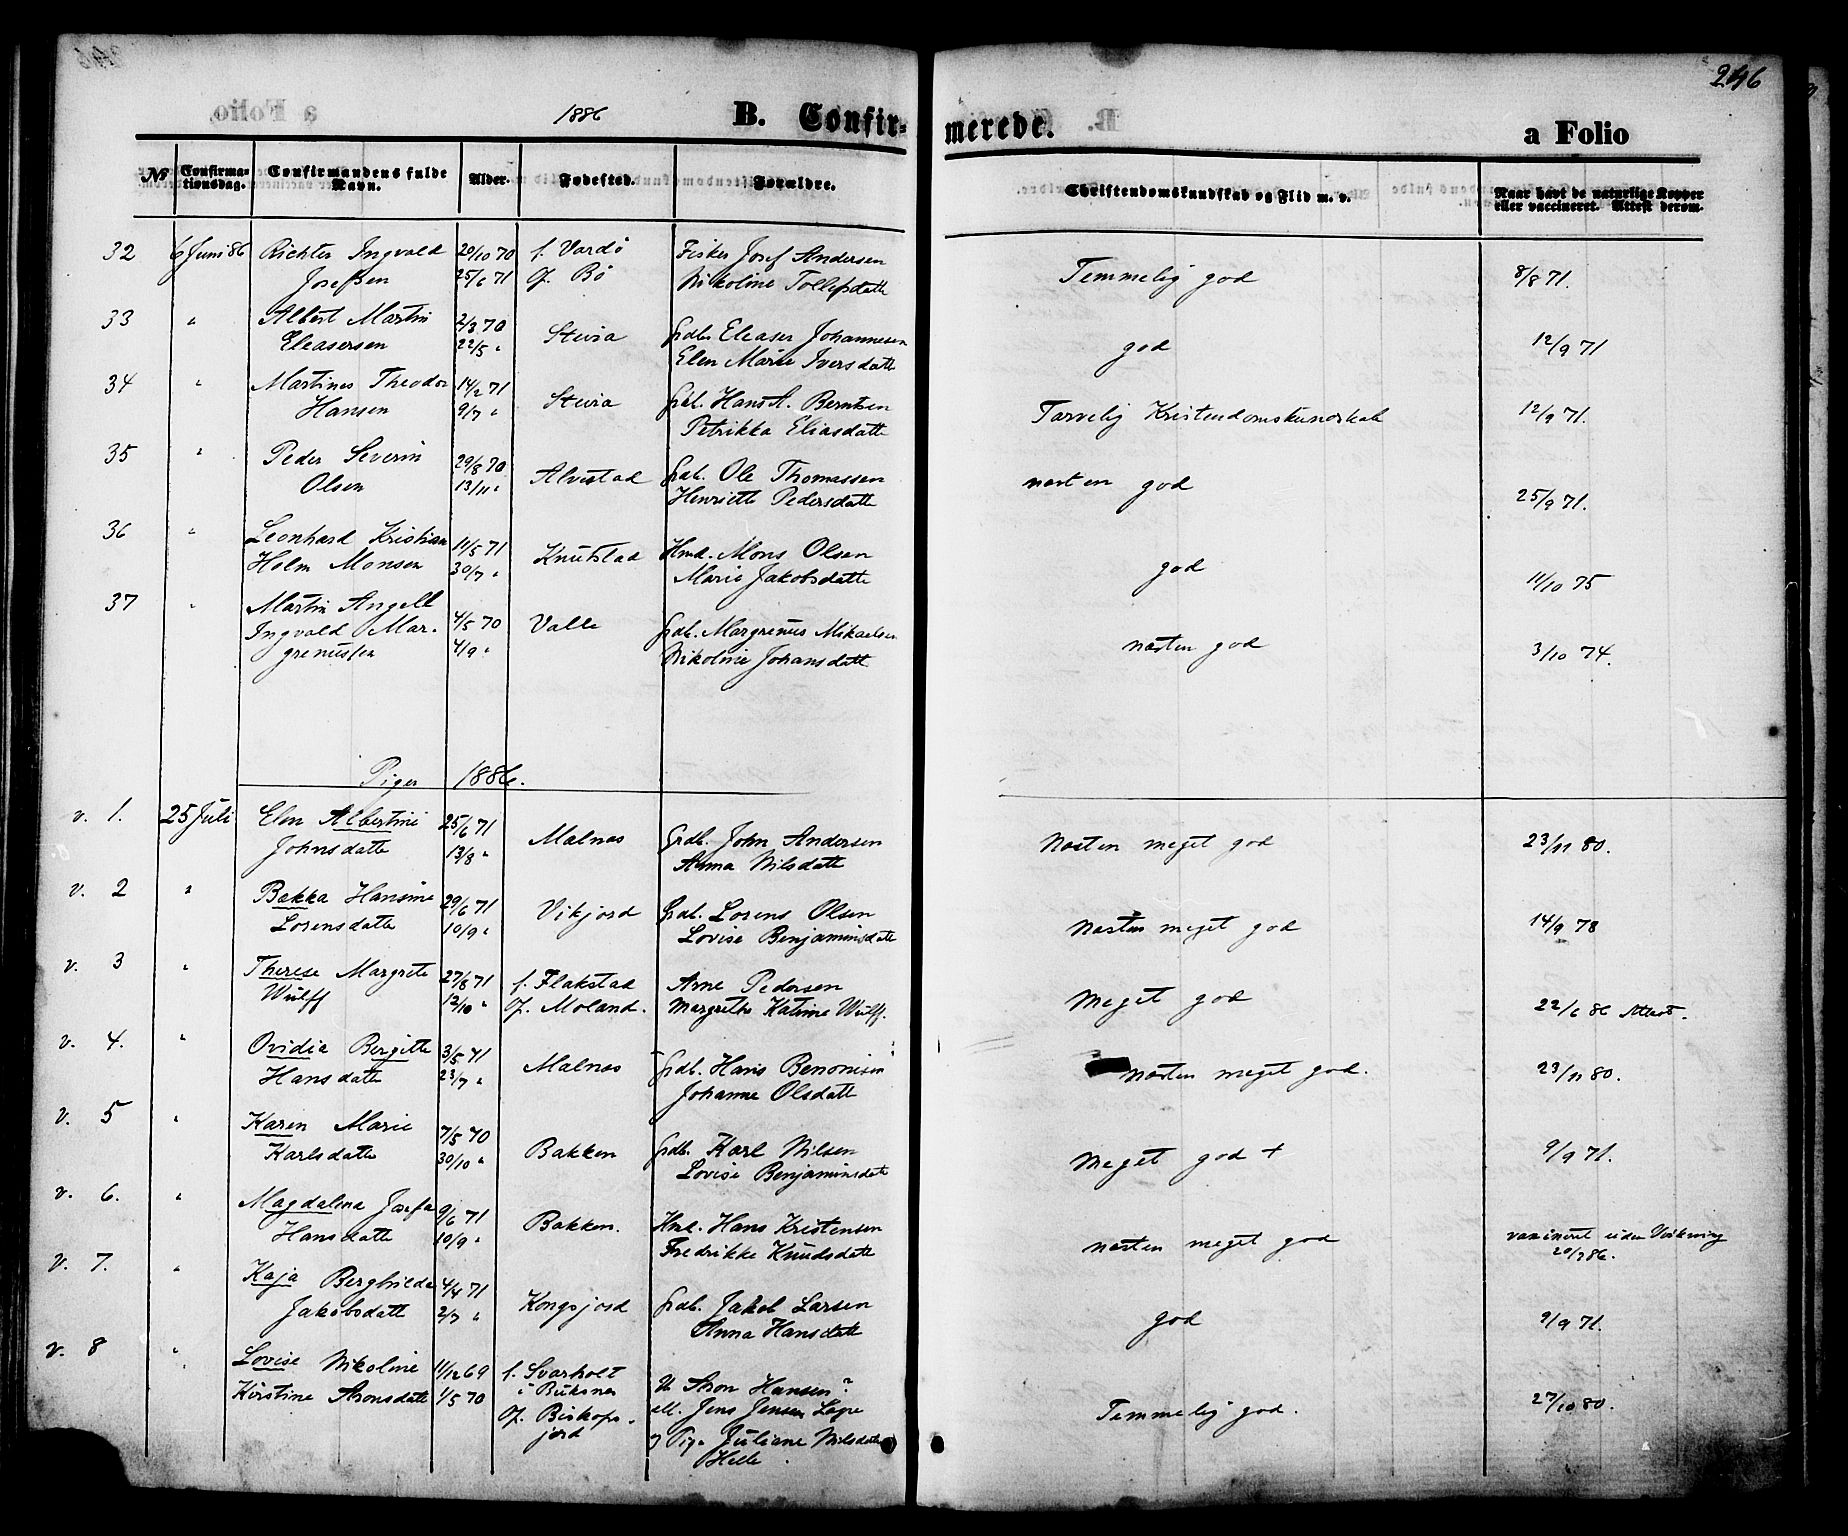 246
1886 B. Confirmerede. a Folio
No Confirmationsdag. Confirmandens fulde Navn. Alder. Fødested. Forældre. Christendomskundskab og Flid m. v. Naar havt de naturlige Kopper eller vaccineret. Attest derom.
32 6 Juni 86 Richter Ingvald 20/10 70 f. Vardö Fisker Josef Andersen Temmelig god 8/8 71.
Josefsen 25/6 71 Bö Nikoline Tollefsdatte
33 " Albert Martin 2/3 70 Steiria Grdb. Eleaser Johannesen god 12/9 71
Eleasersen 22/5 " Elen Marie Iversdatte
34 " Martines Theodor 14/2 71 Steiria Grdb. Hans A. Berntsen Tarvelig Kristendomskundskab 12/9 71.
Hansen 9/7 " Petrikka Eliasdatte
35 " Peder Severin 29/8 70 Alvestad Grdb. Ole Thomassen næsten god 25/9 71.
Olsen 13/11 " Henriette Pedersdatte
36 " Leonhard Kristian 11/5 71 Knutstad Hmd. Mons Olsen god 11/10 75
Holm Monsen 30/7 " Marie Jakobsdatte
37 " Martin Angell 4/5 70 Valle Grdb. Margrenus Mikaelsen næsten god 3/10 74.
Ingvald Mar- 4/9 " Nikoline Johansdatte
grenussen
Piger 1886.
v. 1. 25 Juli Elen Albertine 25/6 71 Malnes Grdb. John Andersen Næsten meget god 23/11 80.
Johnsdatte 13/8 " Anna Nilsdatte
v. 2 " Bekka Hansine 29/6 71 Vikjord Grdb. Lorens Olsen Næsten meget god 14/9 78
Lorensdatte 10/9 " Lovise Benjaminsdatte
v. 3 " Therese Margrete 27/8 71 f. Flakstad Arne Pedersen Meget god 22/6 86 Attest.
Wulff 12/10 " Moland. Margrethe Katinie Wulff.
v. 4. " Ovidia Bergitte 3/5 71 Malnes Grdb. Hans Benonisen næsten meget god. 23/11 80.
Hansdatte 23/7 " Johanne Olsdatte
v. 5 " Karen Marie 7/5 70 Bakken Grdb. Karl Nilsen Meget god + 9/9 71.
Karlsdatte 30/10 " Lovise Benjaminsdatte
v. 6. " Magdalena Josefa 9/6 71 Bakken. Hmd. Hans Kristensen næsten meget god vaxineret uden Virkning
Hansdatte 10/9 " Fredrikke Knudsdatte 20/7 86.
v. 7. " Kaja Berghilda 4/4 71 Kongsjord Grdb. Jakob Larsen god 9/9 71.
Jakobsdatte 2/7 " Anna Hansdatte
v. 8 " Lovise Nikoline 11/12 69 f. Svarholt U. Aron Hansen? Temmelig god. 27/10 80.
Kirstine Aronsdatte 1/5 70 i Buksnes ell. Jens Jensen Lape
Biskops- Pige Juliane Nilsdatte
jord Helle.